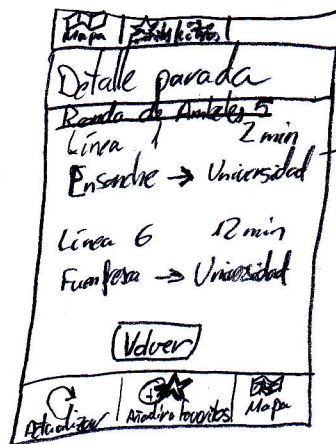 Mapa
Detalle parada
Ronda de Ambeles 5
Línea 1 2 min
Ensanche → Universidad
Línea 6 12 min
Fuenfresca → Universidad
Volver
Actualizar Añadir a favoritos Mapa